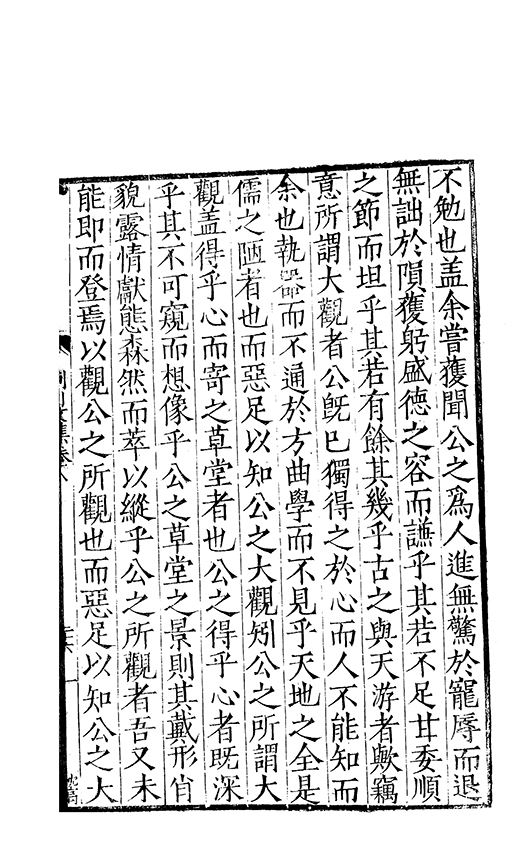 不勉也盖余嘗獲聞公之爲人進無驚於寵辱而退
無詘於隕獲躬盛德之容而謙乎其若不足甘委順
之節而坦乎其若有餘其幾乎古之與天游者歟竊
意所謂大觀者公旣巳獨得之於心而人不能知而
余也執器而不通於方曲學而不見乎天地之全是
儒之陋者也而惡足以知公之大觀矧公之所謂大
觀盖得乎心而寄之草堂者也公之得乎心者旣深
乎其不可窺而想像乎公之草堂之景則其戴形肖
貌露情獻態森然而萃以縱乎公之所觀者吾又未
能即而登焉以觀公之所觀也而惡足以知公之大